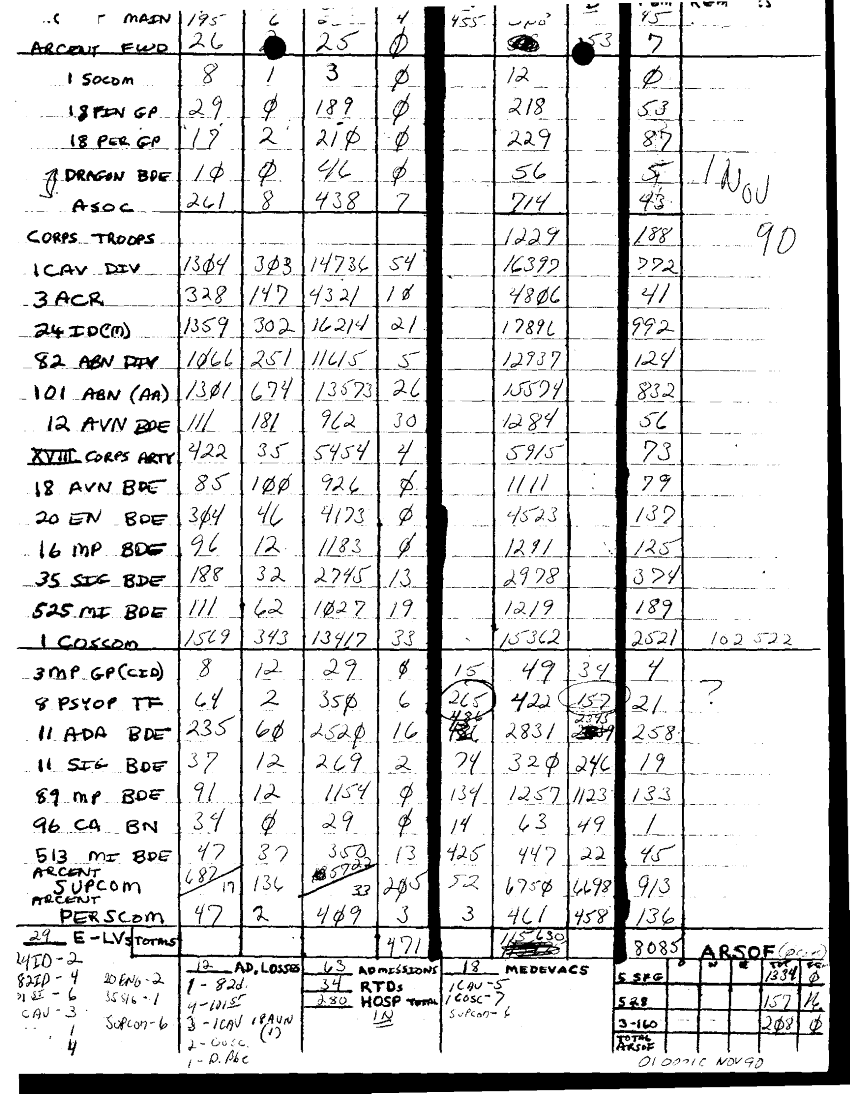 MAIN 195 6 4 455 45
ARCENT FWD 26 25 Ø 53 7
1 SOCOM 8 1 3 Ø 12 Ø
18 FIN GP 29 Ø 189 Ø 218 53
18 PER GP 17 2 21Ø Ø 229 87
DRAGON BDE 1Ø Ø 46 Ø 56 5
ASOC 261 8 438 7 714 43
1 NOV 90
CORPS TROOPS 1229 188
1 CAV DIV 13Ø4 3Ø3 14736 54 16397 772
3 ACR 328 147 4321 1Ø 48Ø6 41
24 ID(M) 1359 302 16214 21 17896 992
82 ABN DIV 1066 251 11615 5 12937 124
101 ABN (AA) 13Ø1 674 13573 26 15574 832
12 AVN BDE 111 181 962 30 1284 56
XVIII CORPS ARTY 422 35 5454 4 5915 73
18 AVN BDE 85 1ØØ 926 Ø 1111 79
20 EN BDE 3Ø4 46 4173 Ø 4523 137
16 MP BDE 96 12 1183 Ø 1291 125
35 SIG BDE 188 32 2745 13 2978 374
525 MI BDE 111 62 1Ø27 19 1219 189
1 COSCOM 1569 343 13417 33 15362 2521 102522
3 MP GP (CID) 8 12 29 Ø 15 49 34 4
8 PSYOP TF 64 2 35Ø 6 265 422 157 21 ?
11 ADA BDE 235 6Ø 252Ø 16 486 2831 2345 258
11 SIG BDE 37 12 269 2 74 32Ø 246 19
89 MP BDE 91 12 1154 Ø 134 1257 1123 133
96 CA BN 34 Ø 29 Ø 14 63 49 1
513 MI BDE 47 37 350 13 425 447 22 45
ARCENT SUPCOM 687 17 136 5722 33 2Ø5 52 675Ø 6698 913
ARCENT PERSCOM 47 2 4Ø9 3 3 461 458 136
29 E-LVS TOTALS 471 115630 8085 ARSOF
24ID-2 12 AD. LOSSES 63 ADMISSIONS 18 MEDEVACS
82ID-4 20 ENG-2 1-82d 34 RTDs 1 CAV-5 5 SFG 1334 Ø
6 35 SIG-1 280 HOSP TOTAL 1 COSC-7 528 157
CAV-3 SUPCOM-6 3-1CAV 18 AVN (1) IN SUPCOM-6 3-160 2Ø8 Ø
1 TOTAL ARSOF
4
NOV 90